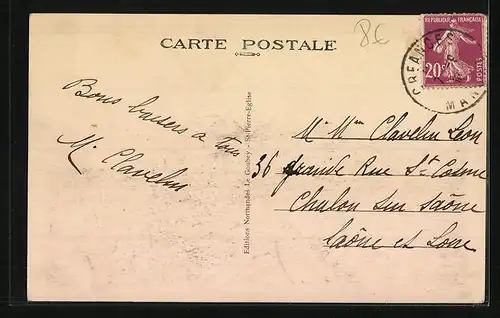 8€
CARTE POSTALE
REPUBLIQUE FRANÇAISE
20c
POSTES
CREANCES
MAN
Bons baisers a tous
M. Clavelin
Editions Normandes Le Goubey - St-Pierre-Eglise
Mr Mme Clavelin Leon
36 grande Rue St Cosme
Chalon sur Saône
Saône et Loire